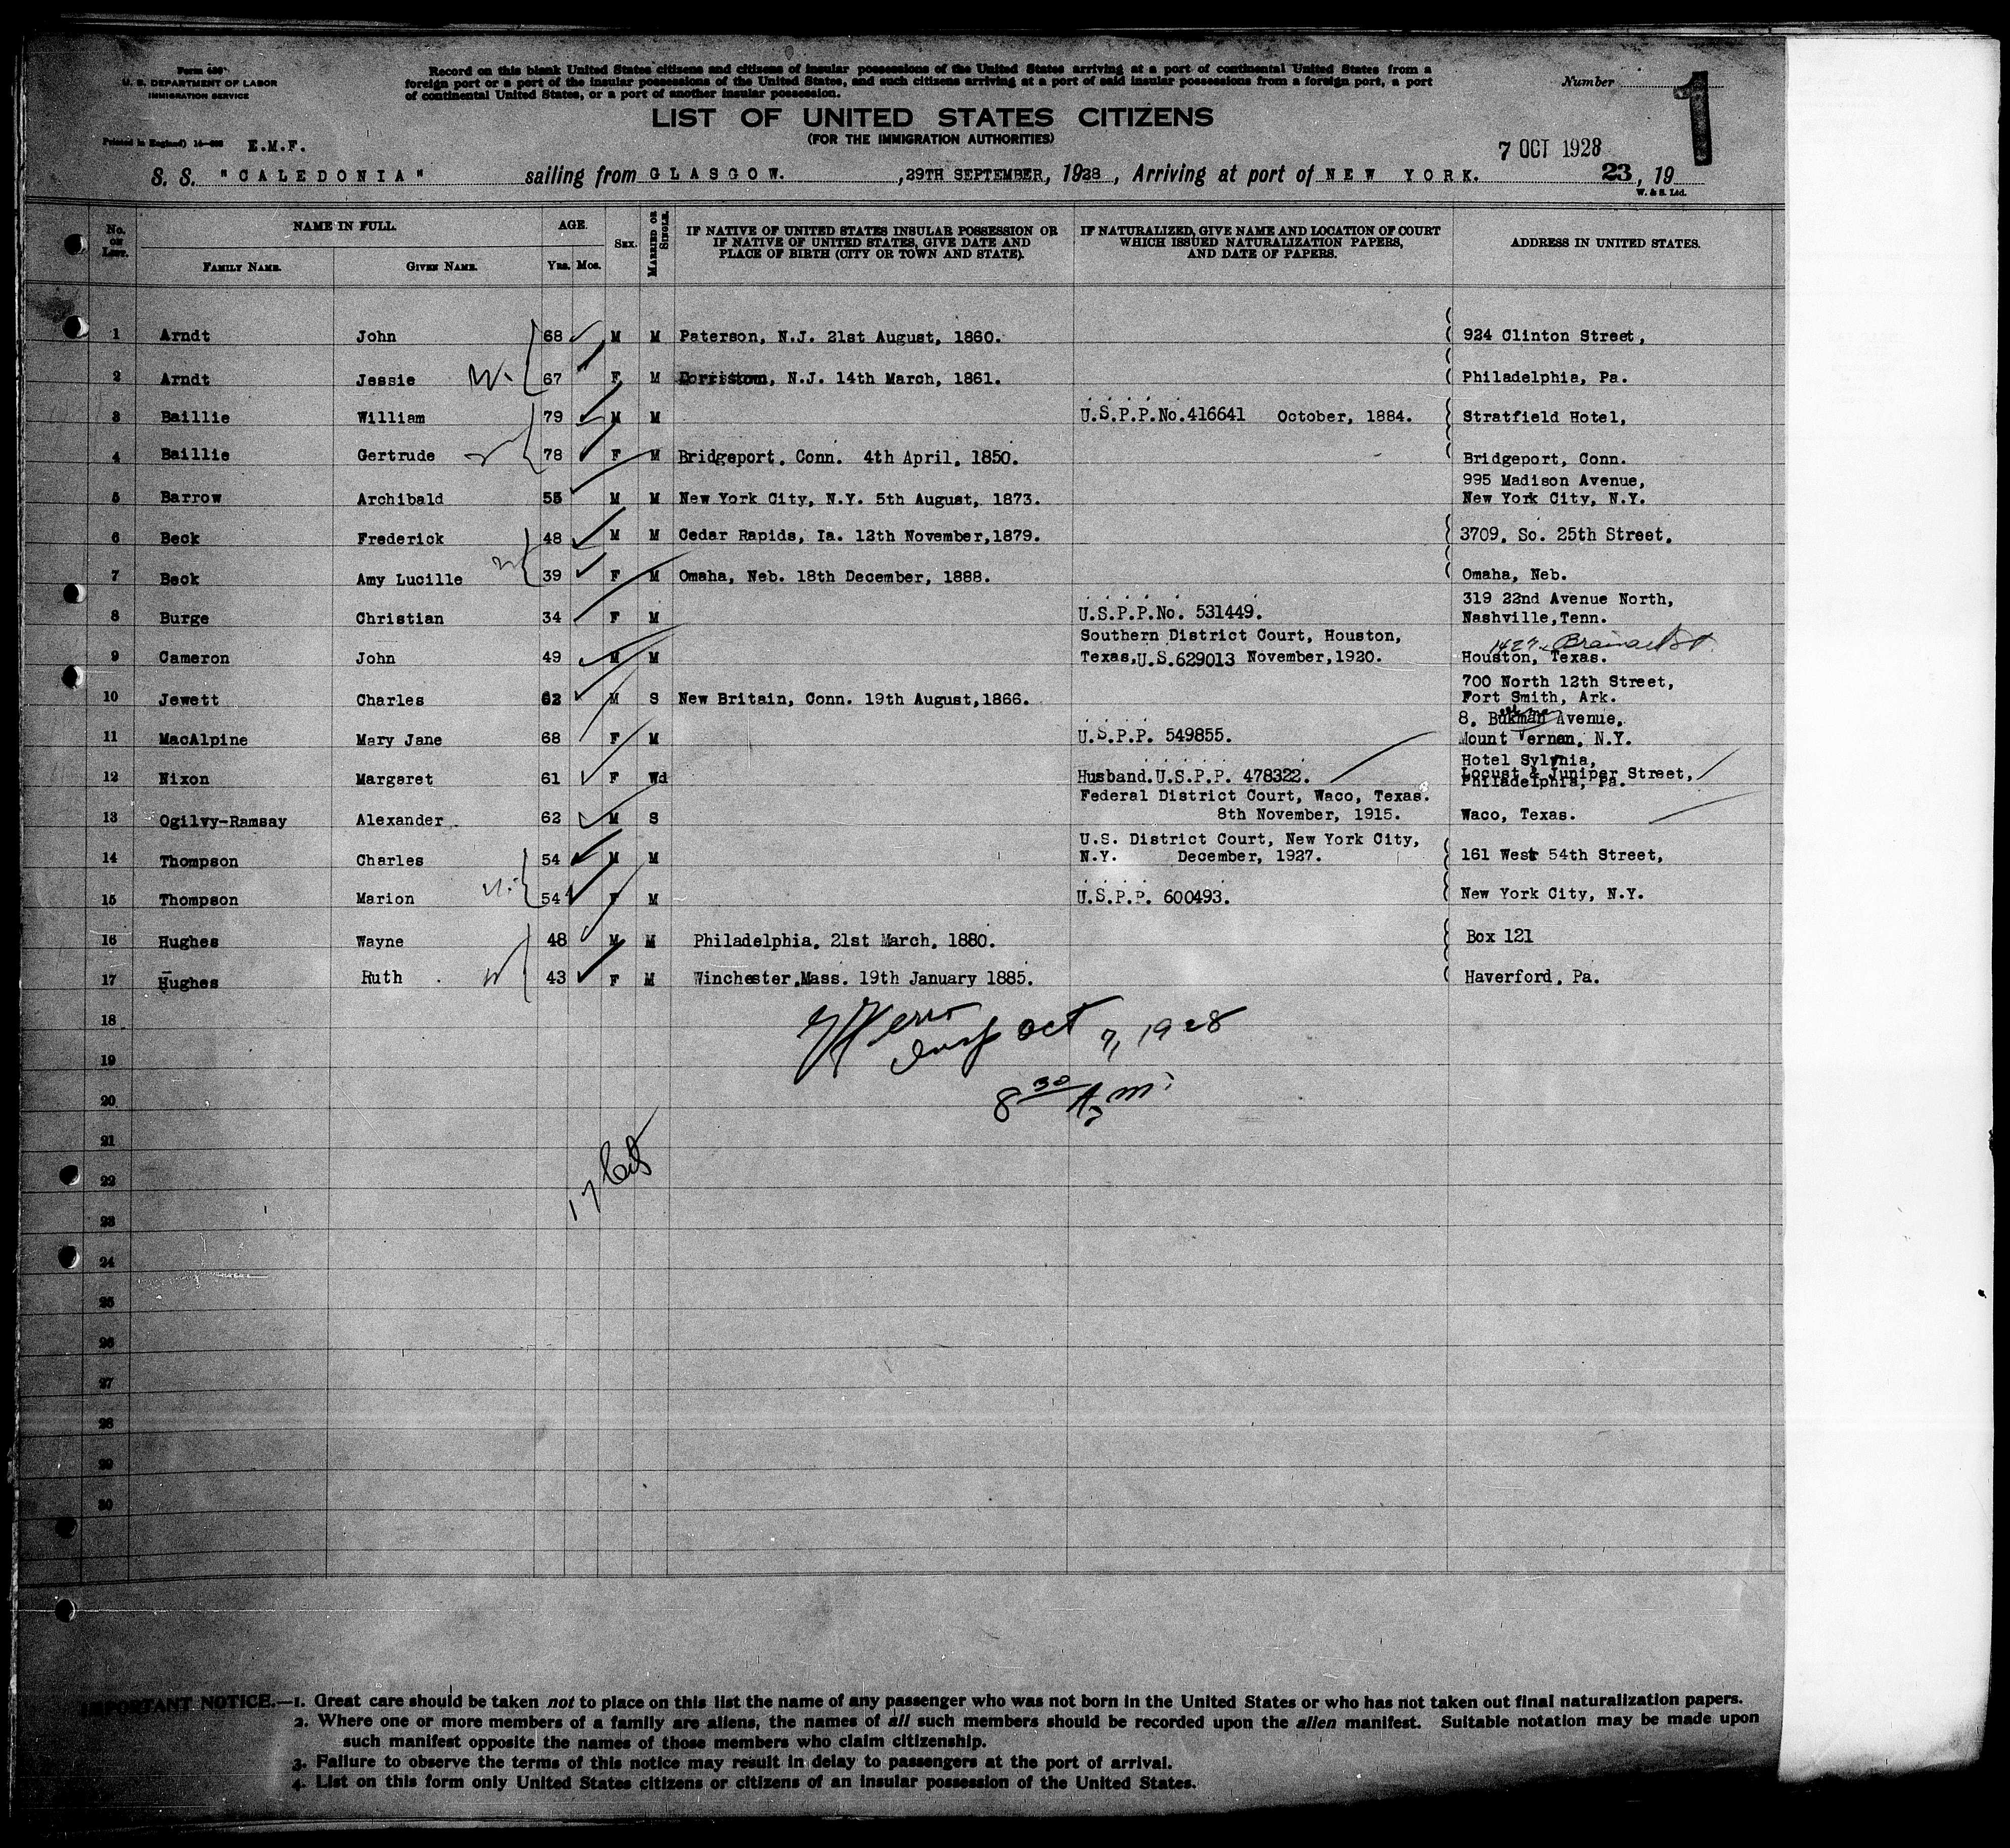 Form 630
U. S. DEPARTMENT OF LABOR
IMMIGRATION SERVICE
Record on this blank United States citizens and citizens of insular possessions of the United States arriving at a port of continental United States from a
foreign port or a port of the insular possessions of the United States, and such citizens arriving at a port of said insular possessions from a foreign port, a port
of continental United States, or a port of another insular possession.
Number
1
LIST OF UNITED STATES CITIZENS
(FOR THE IMMIGRATION AUTHORITIES)
Printed in England) E.M.F.
7 OCT 1928
S. S. "CALEDONIA" sailing from GLASGOW. , 29TH SEPTEMBER, 1928, Arriving at port of NEW YORK. 23, 19
W. & S. Ltd.
No. ON LIST. NAME IN FULL. AGE. SEX. MARRIED OR SINGLE. IF NATIVE OF UNITED STATES INSULAR POSSESSION OR IF NATIVE OF UNITED STATES, GIVE DATE AND PLACE OF BIRTH (CITY OR TOWN AND STATE). IF NATURALIZED, GIVE NAME AND LOCATION OF COURT WHICH ISSUED NATURALIZATION PAPERS, AND DATE OF PAPERS. ADDRESS IN UNITED STATES.
FAMILY NAME. GIVEN NAME. Yrs. Mos.
1 Arndt John 68 M M Paterson, N.J. 21st August, 1860. 924 Clinton Street,
2 Arndt Jessie 67 F M N.J. 14th March, 1861. Philadelphia, Pa.
3 Baillie William 79 M M U.S.P.P.No.416641 October, 1884. Stratfield Hotel,
4 Baillie Gertrude 78 F M Bridgeport, Conn. 4th April, 1850. Bridgeport, Conn.
995 Madison Avenue,
5 Barrow Archibald 55 M M New York City, N.Y. 5th August, 1873. New York City, N.Y.
6 Beck Frederick 48 M M Cedar Rapids, Ia. 12th November,1879. 3709, So. 25th Street,
7 Beck Amy Lucille 39 F M Omaha, Neb. 18th December, 1888. Omaha, Neb.
319 22nd Avenue North,
8 Burge Christian 34 F M U.S.P.P.No. 531449. Nashville,Tenn.
Southern District Court, Houston,
9 Cameron John 49 M M Texas,U.S.629013 November,1920. Houston, Texas.
700 North 12th Street,
10 Jewett Charles 62 M S New Britain, Conn. 19th August,1866. Fort Smith, Ark.
8. Avenue,
11 MacAlpine Mary Jane 68 F M U.S.P.P. 549855. Mount Vernon, N.Y.
Hotel Sylvnia,
12 Nixon Margaret 61 F Wd Husband.U.S.P.P. 478322. Locust & Juniper Street,
Philadelphia, Pa.
Federal District Court, Waco, Texas.
13 Ogilvy-Ramsay Alexander 62 M S 8th November, 1915. Waco, Texas.
U.S. District Court, New York City,
14 Thompson Charles 54 M M N.Y. December, 1927. 161 West 54th Street,
15 Thompson Marion 54 F M U.S.P.P. 600493. New York City, N.Y.
16 Hughes Wayne 48 M M Philadelphia, 21st March, 1880. Box 121
17 Hughes Ruth 43 F M Winchester,Mass. 19th January 1885. Haverford, Pa.
18
Insp Oct 7, 1928
19
20
8 30 A.M.
21
22
17
23
24
25
26
27
28
29
30
IMPORTANT NOTICE.—1. Great care should be taken not to place on this list the name of any passenger who was not born in the United States or who has not taken out final naturalization papers.
2. Where one or more members of a family are aliens, the names of all such members should be recorded upon the alien manifest. Suitable notation may be made upon
such manifest opposite the names of those members who claim citizenship.
3. Failure to observe the terms of this notice may result in delay to passengers at the port of arrival.
4. List on this form only United States citizens or citizens of an insular possession of the United States.